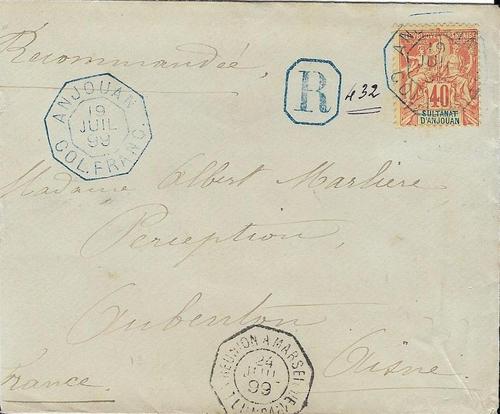 Recommandée,
ANJOUAN
19
JUIL
99
COL. FRANC
R
432
40
SULTANAT
D'ANJOUAN
Madame Albert Marlière
Perception,
Aubenton
Aisne.
France.
REUNION A MARSEILLE
24
JUIL
99